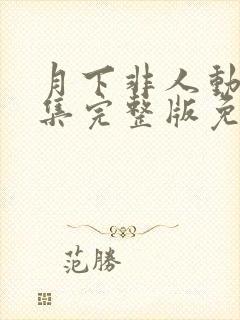 月下非人動
集完整版免
范勝